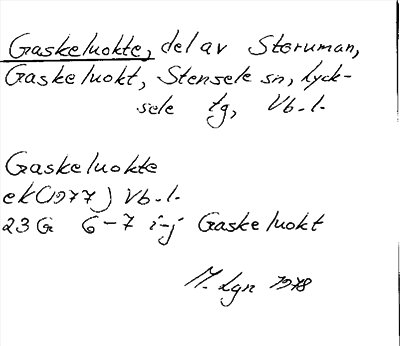 Gaskeluokte, del av Storuman,
Gaskeluokt, Stensele sn, Lyck-
sele tg, Vb.l.
Gaskeluokte
ek(1977) Vb.l.
23G 6-7 i-j Gaskeluokt
M. Lgn 1978